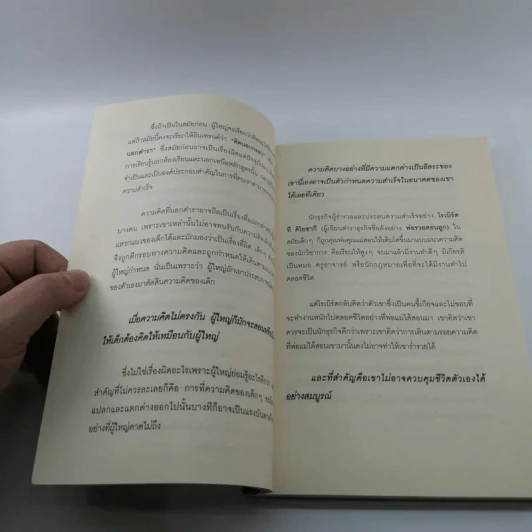 ซึ่งถ้าเป็นในสมัยก่อน ผู้ใหญ่จะเรียกว่าคิด
แต่ถ้าสมัยนี้คงจะเรียกให้อินเทรนด์ว่า "คิดนอกกรอบ"
นอกตำรา" ซึ่งสมัยก่อนอาจเป็นเรื่องผิด
การเรียนรู้นอกห้องเรียนและนอกเหนือหลักสูตรนั้น
จำเป็นและเป็นองค์ประกอบสำคัญในการที่คนเรา
ความสำเร็จ
ความคิดที่นอกตำราอาจถือเป็นเรื่องที่
บางคน เพราะเขาเหล่านั้นไม่อาจทนรับกับความคิด
แหวกแนวของเด็กได้และมักมองว่าเป็นเรื่องที่ผิด
จึงถูกตีกรอบทางความคิดและถูกกำหนดให้เดินตาม
ผู้ใหญ่กำหนด นั่นเป็นเพราะว่า ผู้ใหญ่มักเอาประสบการณ์
ของตัวเองมาตัดสินความคิดของเด็ก
เมื่อความคิดไม่ตรงกัน ผู้ใหญ่ก็มักจะสอน
ให้เด็กต้องคิดให้เหมือนกับผู้ใหญ่
ซึ่งไม่ใช่เรื่องผิดอะไรเพราะผู้ใหญ่ย่อมรู้อะไรดีกว่า
สำคัญที่ไม่ควรละเลยก็คือ การที่ความคิดของเด็กๆ
แปลกและแตกต่างออกไปนั้นบางทีก็อาจเป็นแรง
อย่างที่ผู้ใหญ่คาดไม่ถึง
ความคิดบางอย่างที่มีความแตกต่างเป็นอิสระของ
เขานี่เองอาจเป็นตัวกำหนดความสำเร็จในอนาคตของเขา
ได้เลยทีเดียว
นักธุรกิจผู้ร่ำรวยและประสบความสำเร็จอย่าง โรเบิร์ต
ที คิโยซากิ (ผู้เขียนตำราธุรกิจชื่อดังอย่าง พ่อรวยสอนลูก) ใน
สมัยเด็กๆ ก็ถูกพ่อคุณแม่สอนให้เติบโตขึ้นมาแบบแนวความคิด
ของนักวิชาการ คือเรียนให้สูงๆ จบมาแล้วมีงานทำดีๆ มีเกียรติ
เป็นหมอ ครูอาจารย์ หรือนักกฎหมายเพื่อที่จะได้มีงานทำไป
ตลอดชีวิต
แต่โรเบิร์ตกลับคิดว่าตัวเขาซึ่งเป็นคนขี้เกียจและไม่ชอบที่
จะทำงานหนักไปตลอดชีวิตอย่างที่พ่อแม่ได้สอนมา เขาคิดว่าเขา
ควรจะเป็นนักธุรกิจดีกว่าเพราะเขาคิดว่าการเดินตามรอยความคิด
ที่พ่อแม่ได้สอนเขามานั้นคงไม่อาจทำให้เขาร่ำรวยได้
และที่สำคัญคือเขาไม่อาจควบคุมชีวิตตัวเองได้
อย่างสมบูรณ์